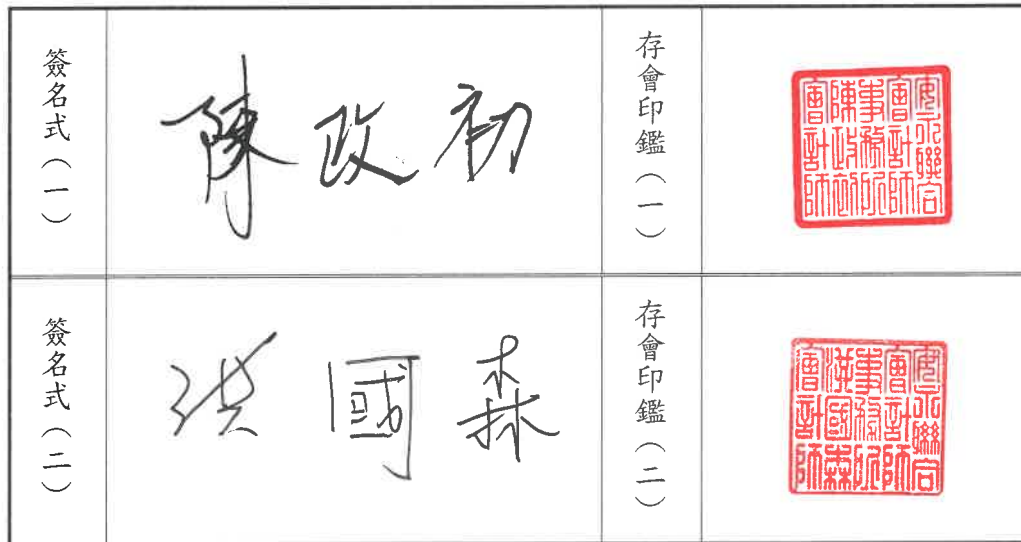 簽名式（一）
陳政初
存會印鑑（一）
安永聯合
會計師
事務所
陳政初
會計師
簽名式（二）
洪國森
存會印鑑（二）
安永聯合
會計師
事務所
洪國森
會計師